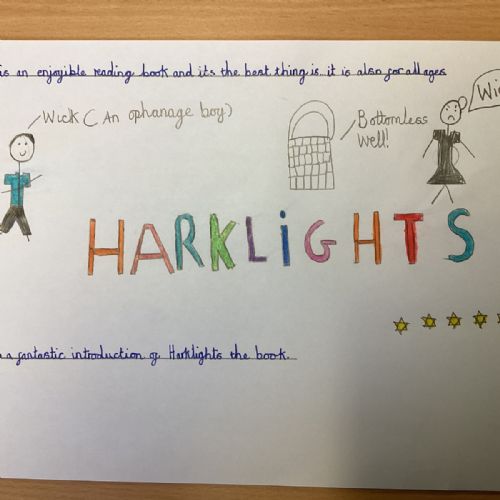 is an enjoyible reading book and its the best thing is it is also for all ages
Wick (An ophanage boy)
Bottomless
Well!
HARKLiGHTS
a fantastic introduction of Harklights the book.